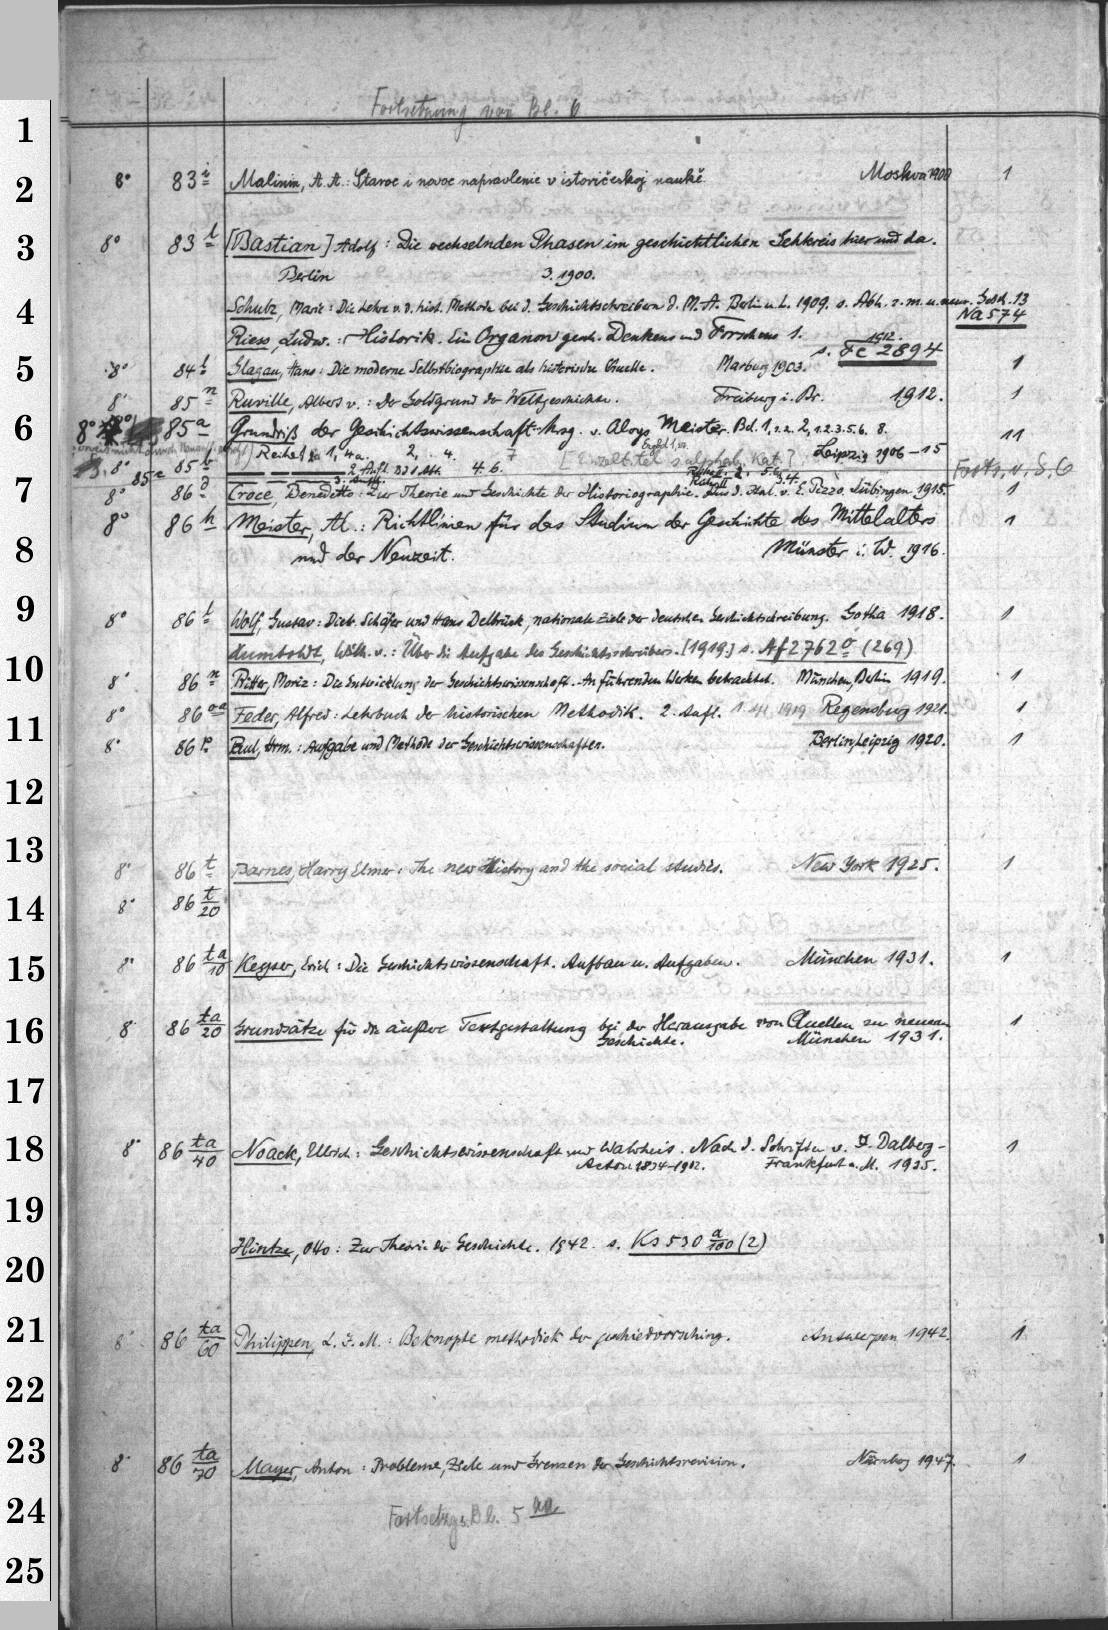 Fortsetzung von Bl. 6
1
2
8° 83 i Malinin, A. A.: Staroe i novoe napravlenie v istoričeskoj naukě. Moskva 1900 1
3
8° 83 l [Bastian] Adolf: Die wechselnden Phasen im geschichtlichen Sehkreis hier und da.
Berlin 3. 1900.
4
Schulz, Marie: Die Lehre v. d. hist. Methode bei d. Geschichtschreibern d. M.-A. Berlin u. L. 1909. s. Abh. z. m. u. neur. Gesch. 13
Na 574
Riess, Ludw.: Historik. Ein Organon gesch. Denkens und Forschens 1. 1912. s. Fc 2894
5
8° 84 l Glagau, Hans: Die moderne Selbstbiographie als historische Quelle. Marburg 1903. 1
8° 85 n Ruville, Albert v.: Der Goldgrund der Weltgeschichte. Freiburg i. Br. 1912. 1
6
8° 85 a Grundriß der Geschichtswissenschaft. Hrsg. v. Aloys Meister. Bd. 1, 2, 1.2.3.5.6. 8. 11
Reihe 1, 4a. 2, 4. 7 [Einzeltitel s. alphab. Kat.] Leipzig 1906-15
8° 85 2. Aufl. 4. 6. Forts. v. S. 6
85 c
7
8° 86 d Croce, Benedetto: Zur Theorie und Geschichte der Historiographie. Aus d. Ital. v. E. Pizzo. Tübingen 1915. 1
8° 86 h Meister, Al.: Richtlinien für das Studium der Geschichte des Mittelalters 1
8
und der Neuzeit. Münster i. W. 1916.
9
8° 86 l Wolf, Gustav: Dietr. Schäfer und Hans Delbrück, nationale Ziele der deutschen Geschichtschreibung. Gotha 1918. 1
Humboldt, Wilh. v.: Über die Aufgabe des Geschichtsschreibers. [1919] s. Af 2762 o (269)
10
8° 86 n Ritter, Moriz: Die Entwicklung der Geschichtswissenschaft. An führenden Werken betrachtet. München, Berlin 1919. 1
8° 86 oa Feder, Alfred: Lehrbuch der historischen Methodik. 2. Aufl. 1919 Regensburg 1921. 1
11
8° 86 p Paul, Hrm.: Aufgabe und Methode der Geschichtswissenschaften. Berlin, Leipzig 1920. 1
12
13
8° 86 t Barnes, Harry Elmer: The new History and the social studies. New York 1925. 1
8° 86 t/20
14
15
8° 86 ta/10 Keyser, Erich: Die Geschichtswissenschaft. Aufbau u. Aufgaben. München 1931. 1
16
8° 86 ta/20 Grundsätze für die äußere Textgestaltung bei der Herausgabe von Quellen zur neueren 1
Geschichte. München 1931.
17
18
8° 86 ta/40 Noack, Ulrich: Geschichtswissenschaft und Wahrheit. Nach d. Schriften v. J. Dalberg- 1
Acton 1834-1902. Frankfurt a. M. 1935.
19
Hintze, Otto: Zur Theorie der Geschichte. 1942. s. Ks 530 a/100 (2)
20
21
8° 86 ta/60 Philippen, L. J. M.: Beknopte methodiek der geschiedvorsching. Antwerpen 1942. 1
22
23
8° 86 ta/70 Mayer, Anton: Probleme, Ziele und Grenzen der Geschichtsrevision. Nürnberg 1947. 1
24
Fortsetzg. Bl. 5 aa
25